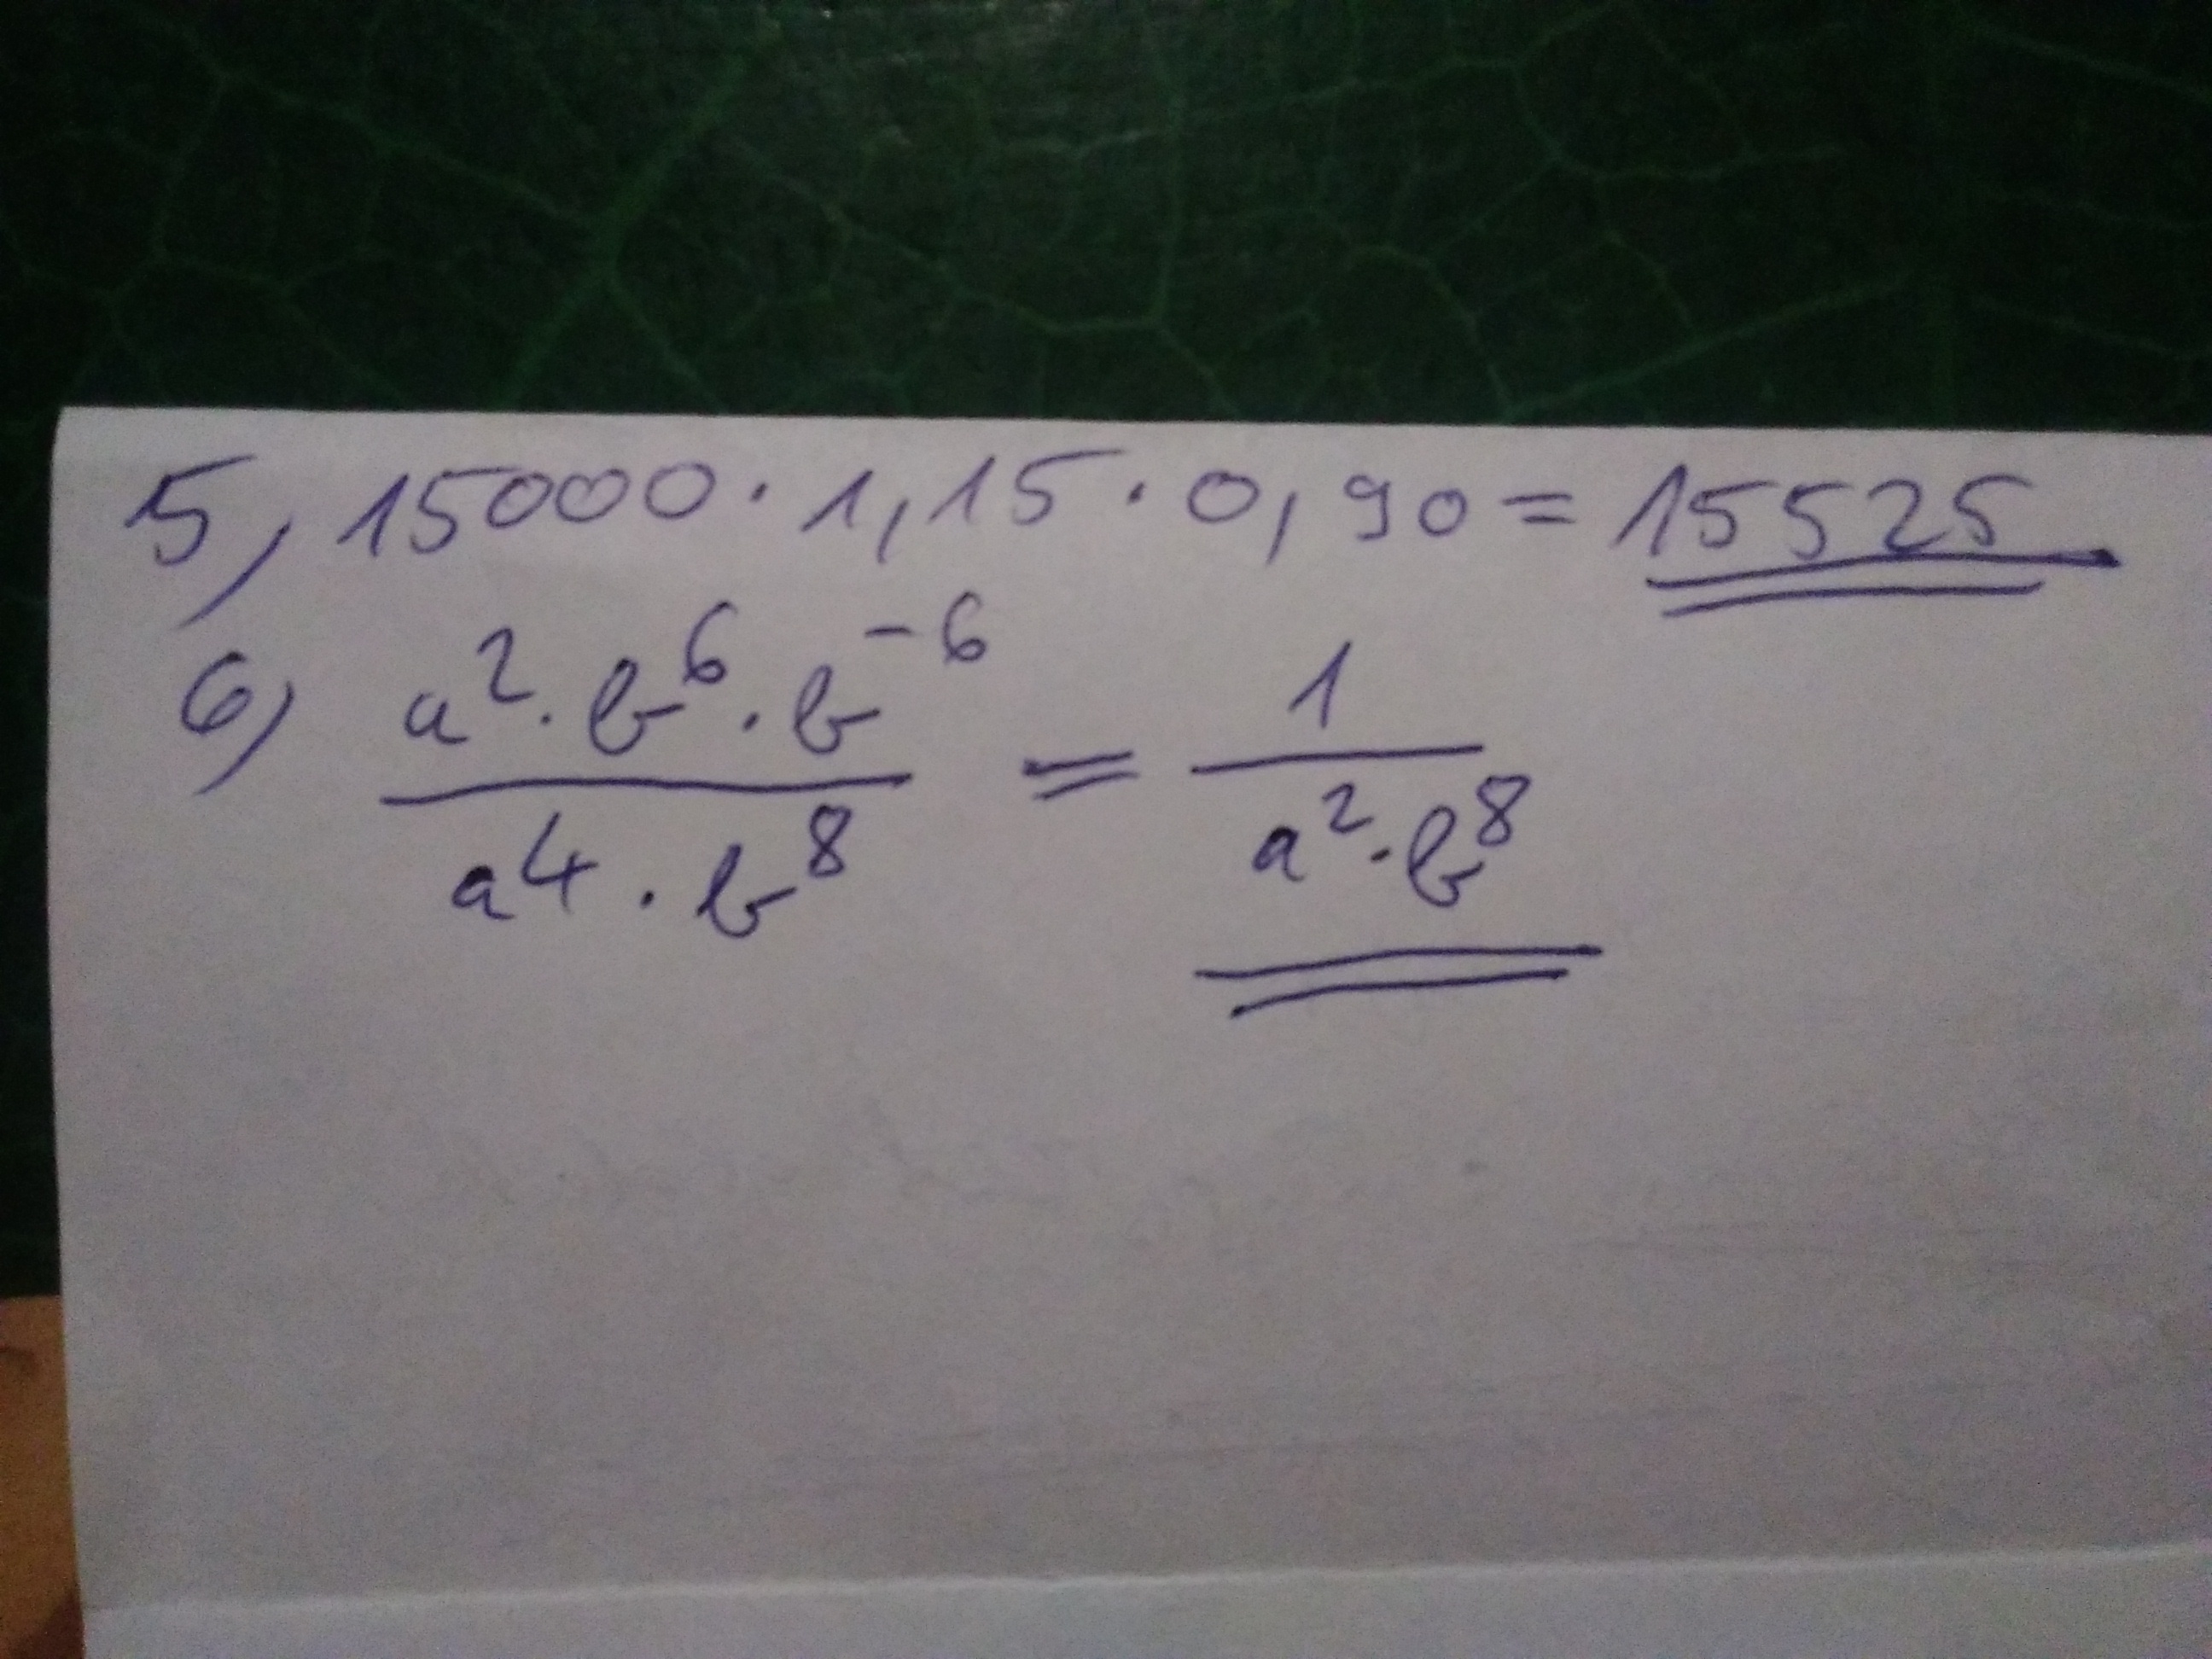 5, 15000 · 1,15 · 0,90 = 15525
6, a² · b⁶ · b⁻⁶ / a⁴ · b⁸ = 1 / a² · b⁸